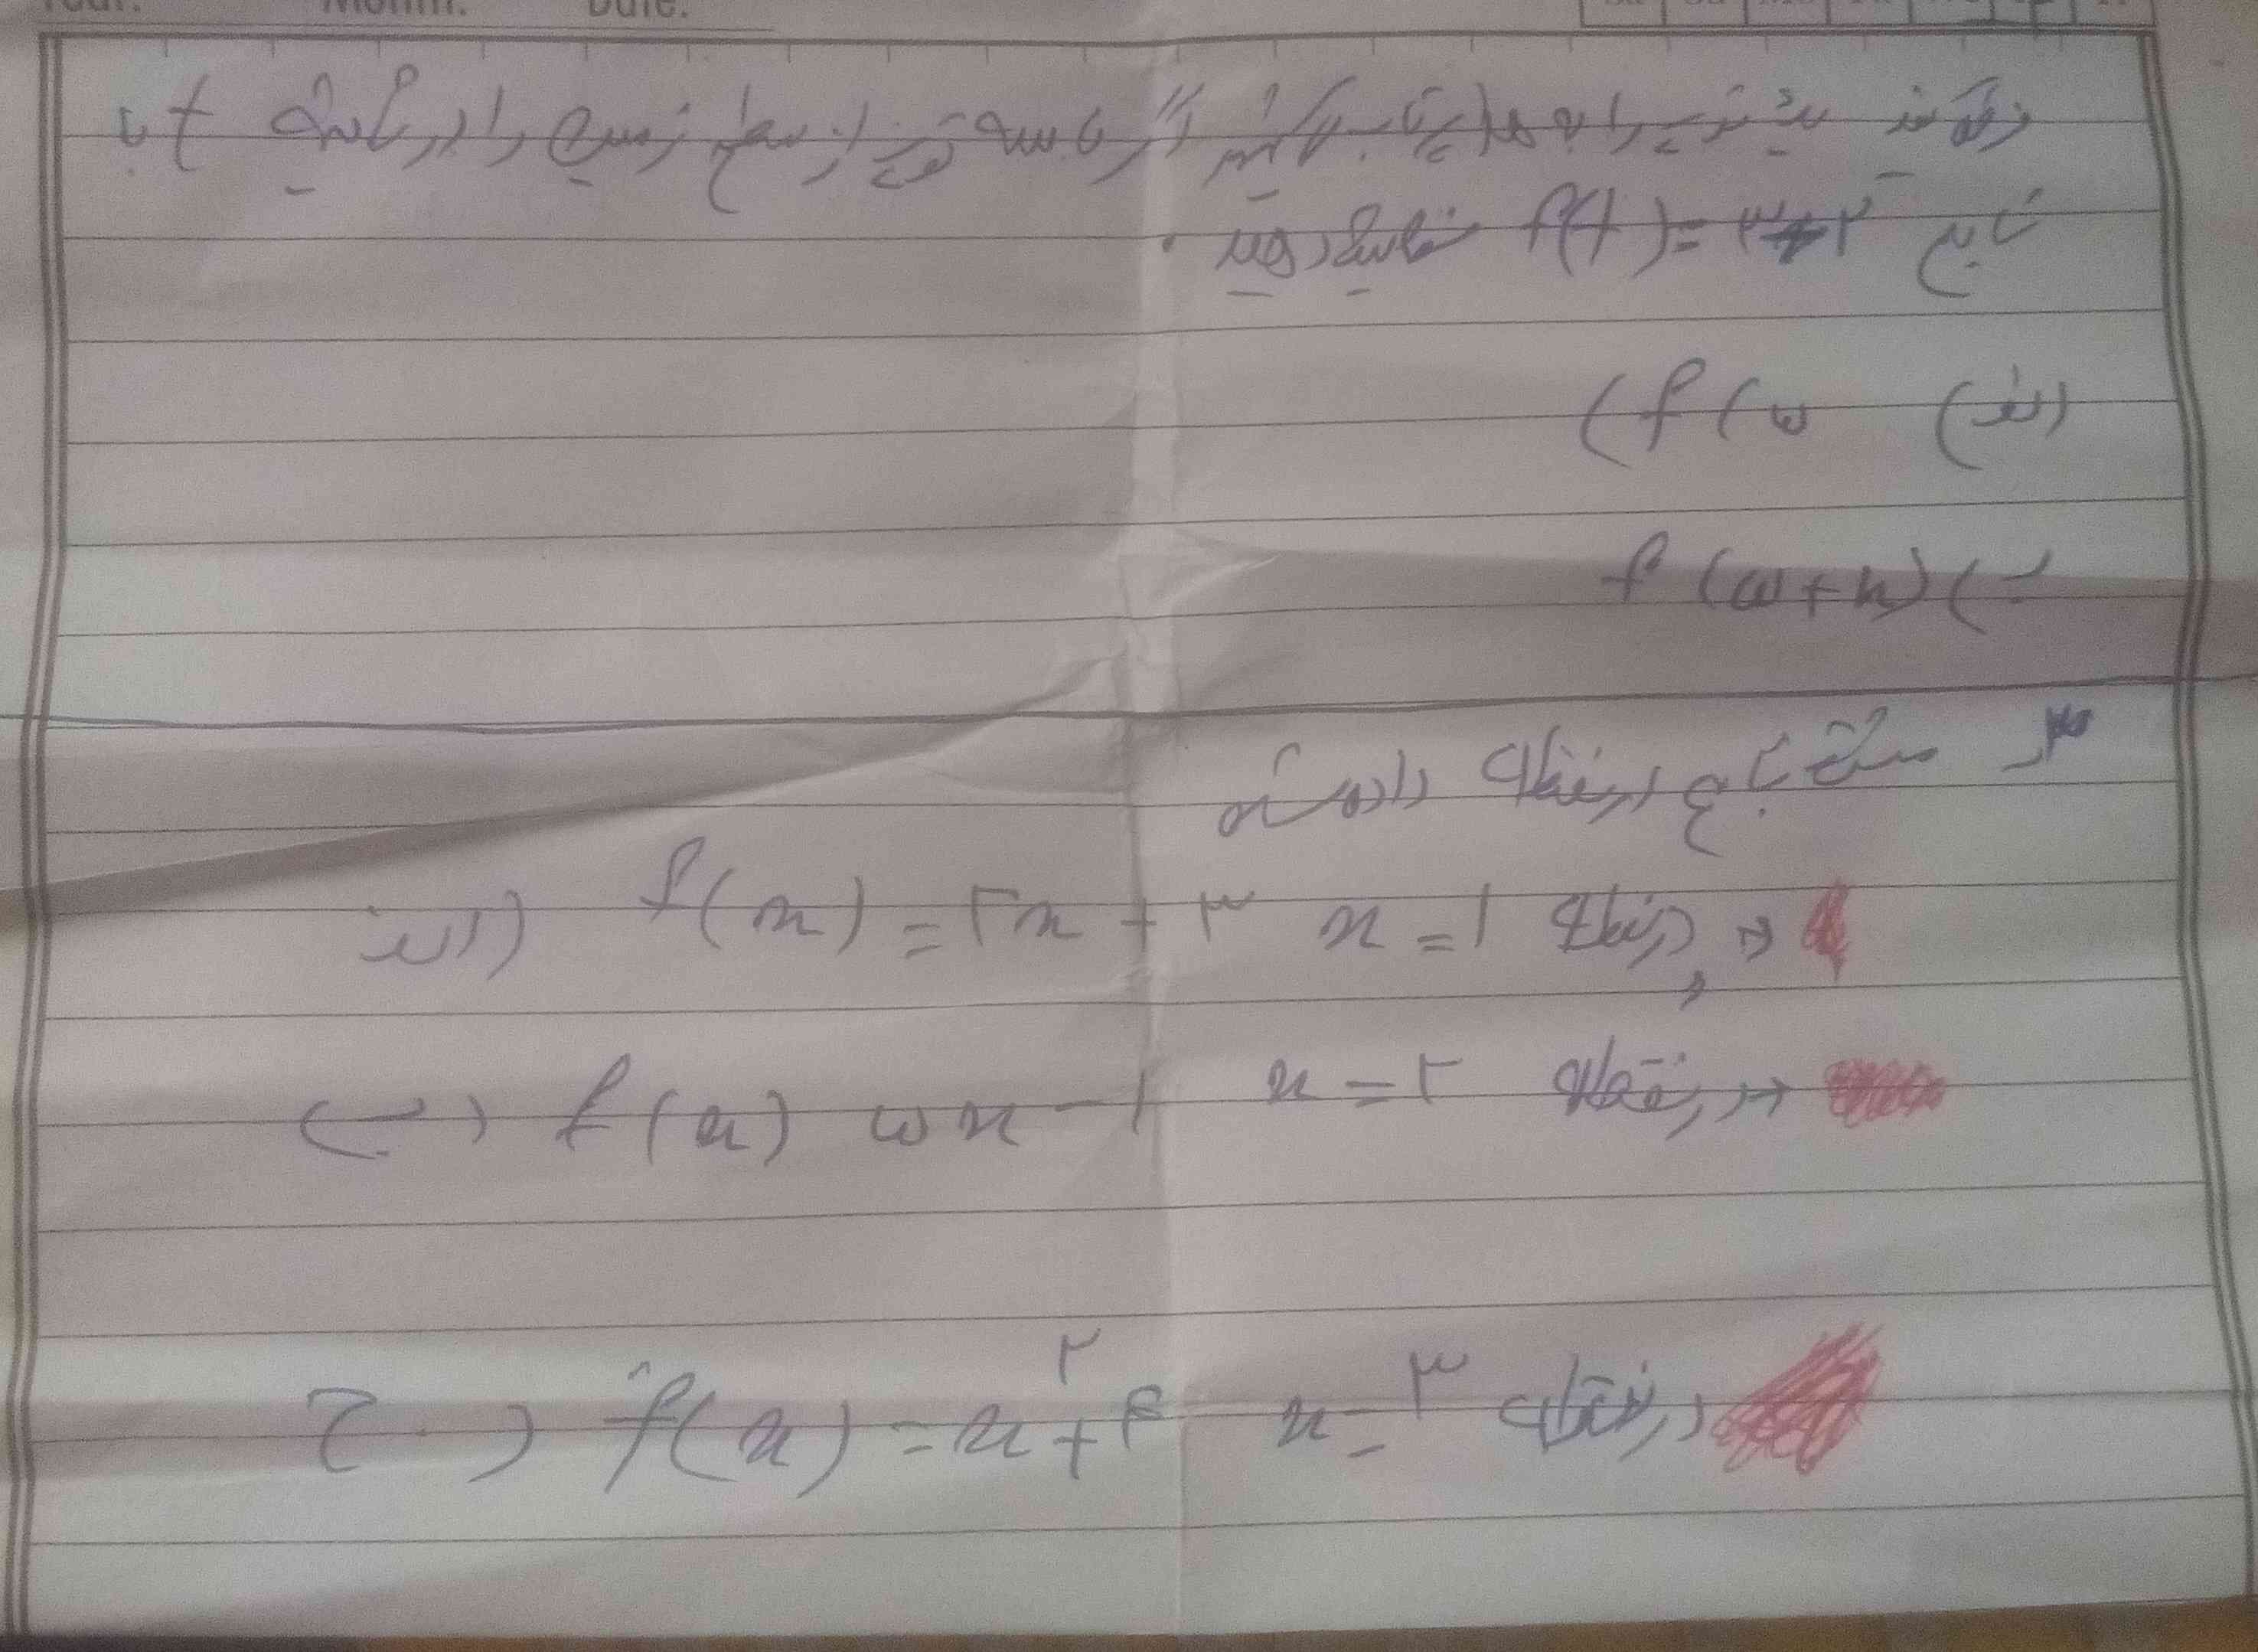 Year: Month: Date:
فرض کنید را به هوا پرتاب کنیم اگر فاصله توپ از سطح زمین را در ثانیه t با
تابع f(t) = نمایش دهید .
الف) f(۳)
ب) f(۳+h)
۳ـ مشتق تابع در نقطه داده شده
الف) f(x) = ۲x + ۳ x = ۱ در نقطه
ب) f(x) ۳x - ۱ x = ۲ در نقطه
ج) f(x) = x² + ۴ x = ۳ در نقطه